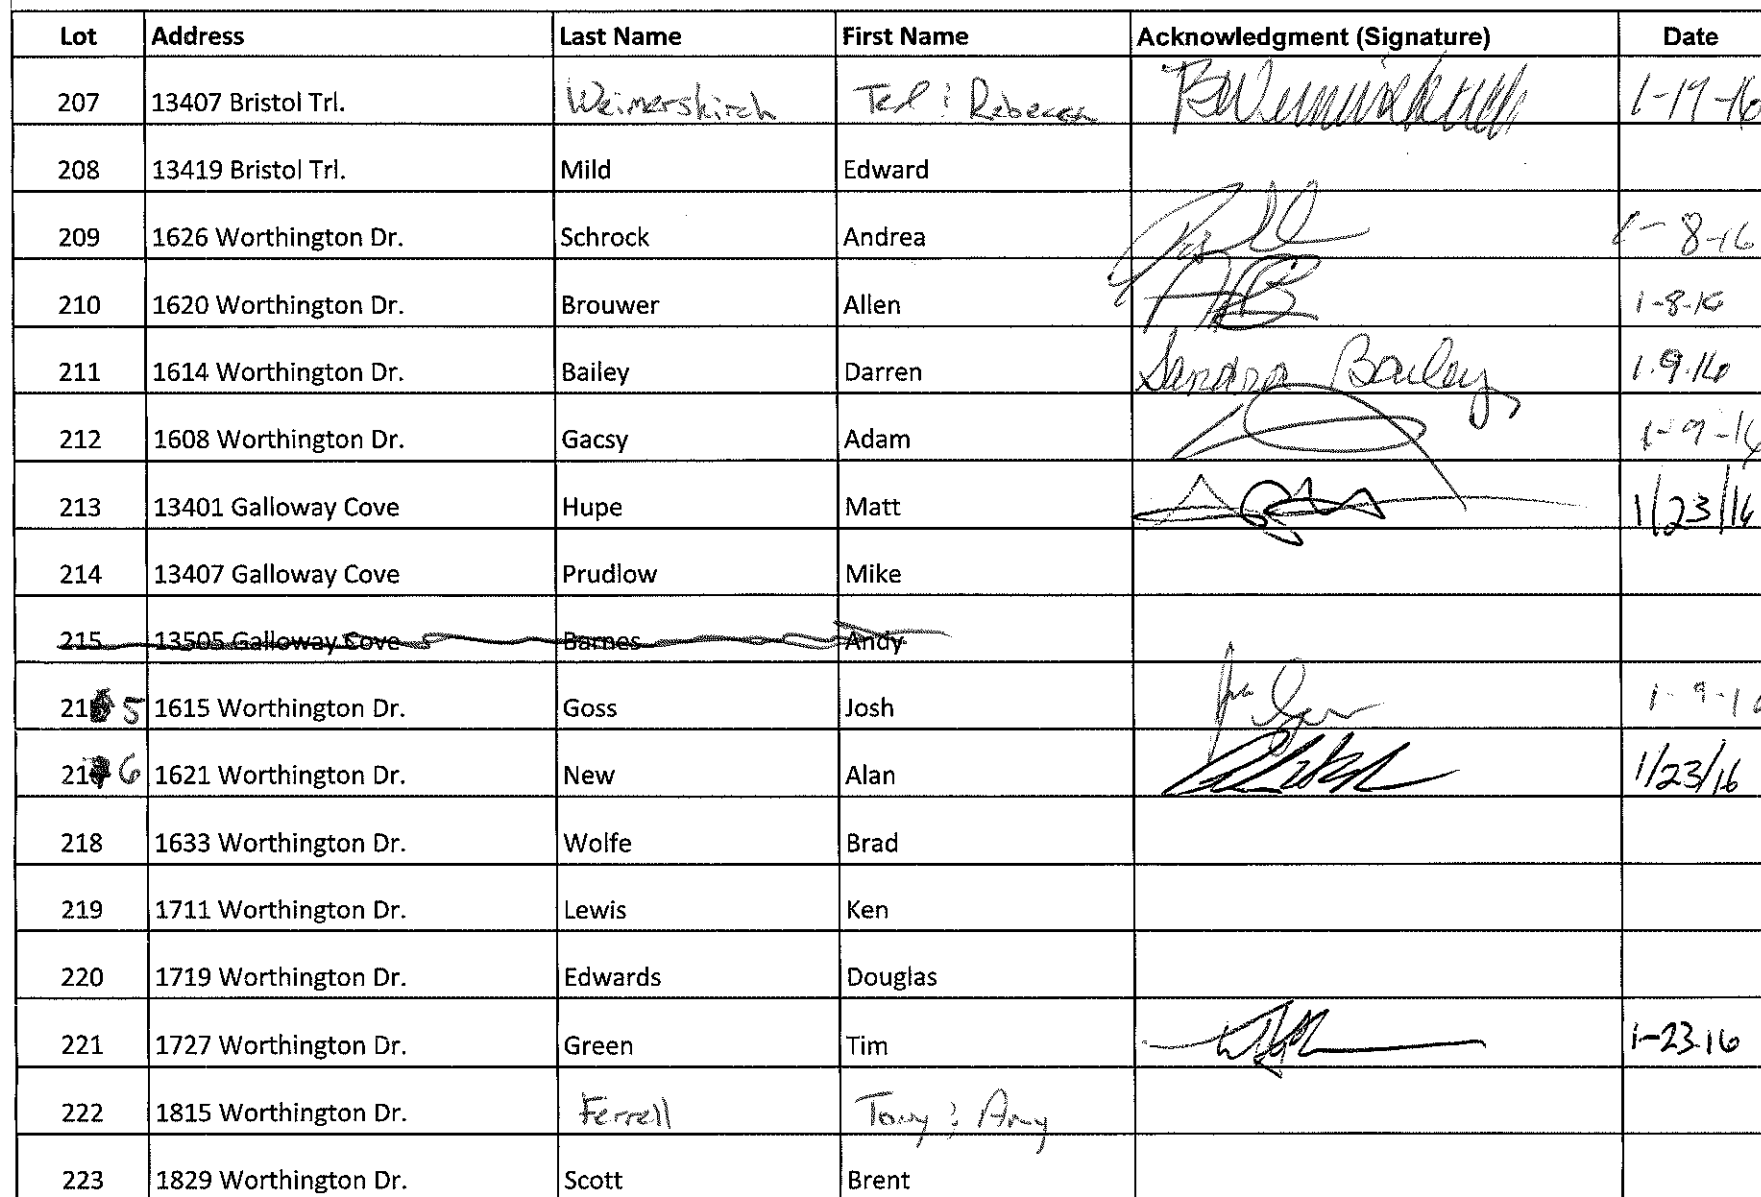 Lot Address Last Name First Name Acknowledgment (Signature) Date
207 13407 Bristol Trl. Weimerskirch Ted & Rebecca 1-17-16
208 13419 Bristol Trl. Mild Edward
209 1626 Worthington Dr. Schrock Andrea 1-8-16
210 1620 Worthington Dr. Brouwer Allen 1-8-16
211 1614 Worthington Dr. Bailey Darren Sandra Bailey 1.9.16
212 1608 Worthington Dr. Gacsy Adam 1-9-16
213 13401 Galloway Cove Hupe Matt 1/23/16
214 13407 Galloway Cove Prudlow Mike
215 13505 Galloway Cove Barnes Andy
215 1615 Worthington Dr. Goss Josh 1-9-16
216 1621 Worthington Dr. New Alan 1/23/16
218 1633 Worthington Dr. Wolfe Brad
219 1711 Worthington Dr. Lewis Ken
220 1719 Worthington Dr. Edwards Douglas
221 1727 Worthington Dr. Green Tim 1-23.16
222 1815 Worthington Dr. Ferrell Tony & Amy
223 1829 Worthington Dr. Scott Brent